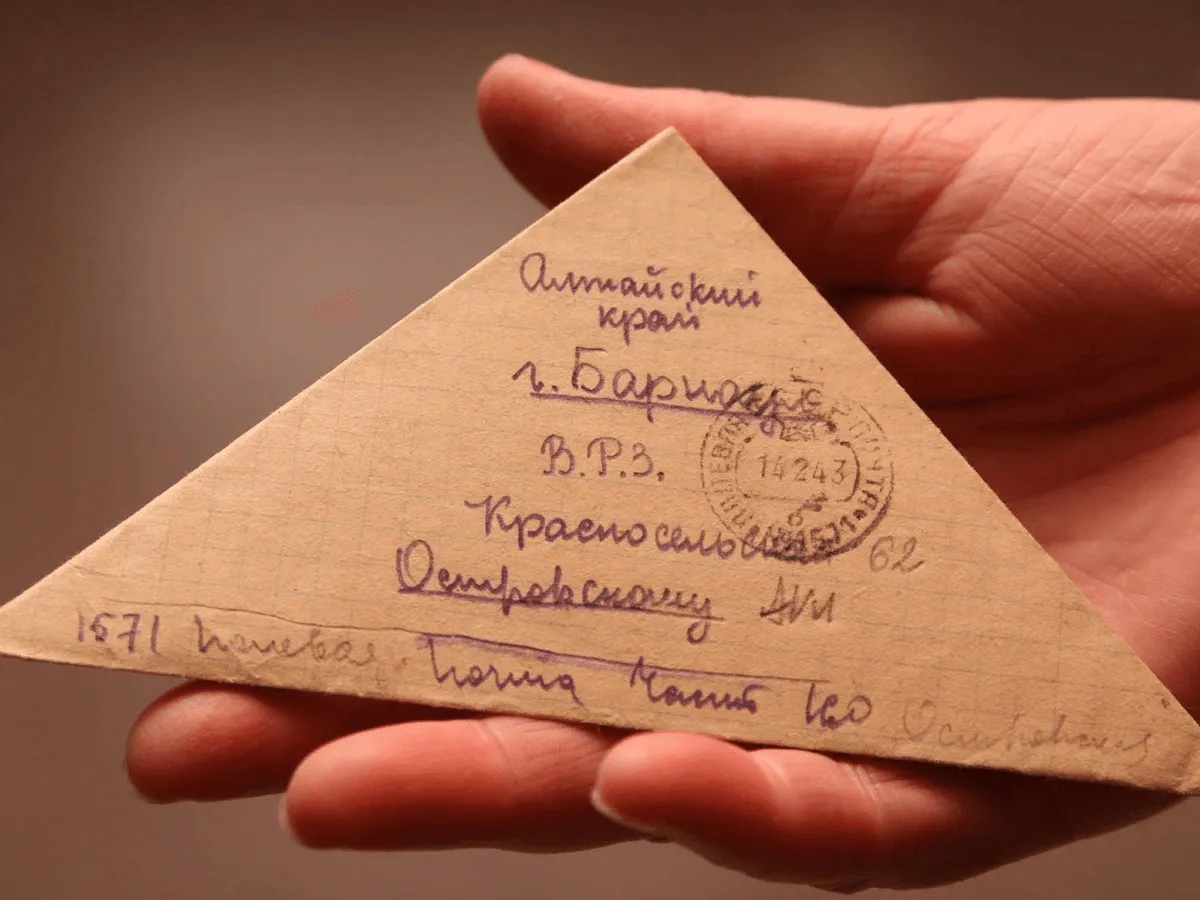 Алтайский
край
г. Барнаул
В.Р.З.
Красносельская 62
Островскому
1571 Полевая почта часть 160
ПОЛЕВАЯ ПОЧТА
14 2 43